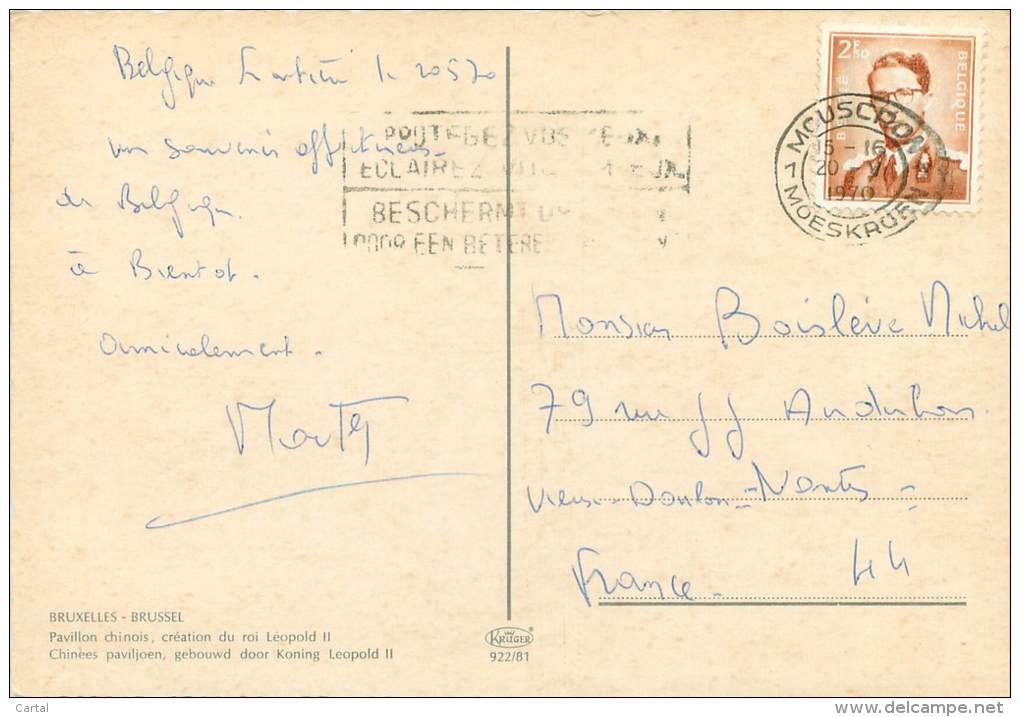 Belgique le 20 5 70
un souvenir affectueux
de Belgique.
à Bientot.
amicalement.
BRUXELLES - BRUSSEL
Pavillon chinois, création du roi Léopold II
Chinees paviljoen, gebouwd door Koning Leopold II
ECLAIREZ
BESCHERMT
DOOR EEN BETERE
KRÜGER
922/81
2F50
BELGIQUE
MOUSCRON
15-16
20
1970
1 MOESKROEN 1
Monsieur Boislève Michel
79 rue JJ Audubon
Vieux-Doulon-Nantes-
France. 44
Cartal
www.delcampe.net